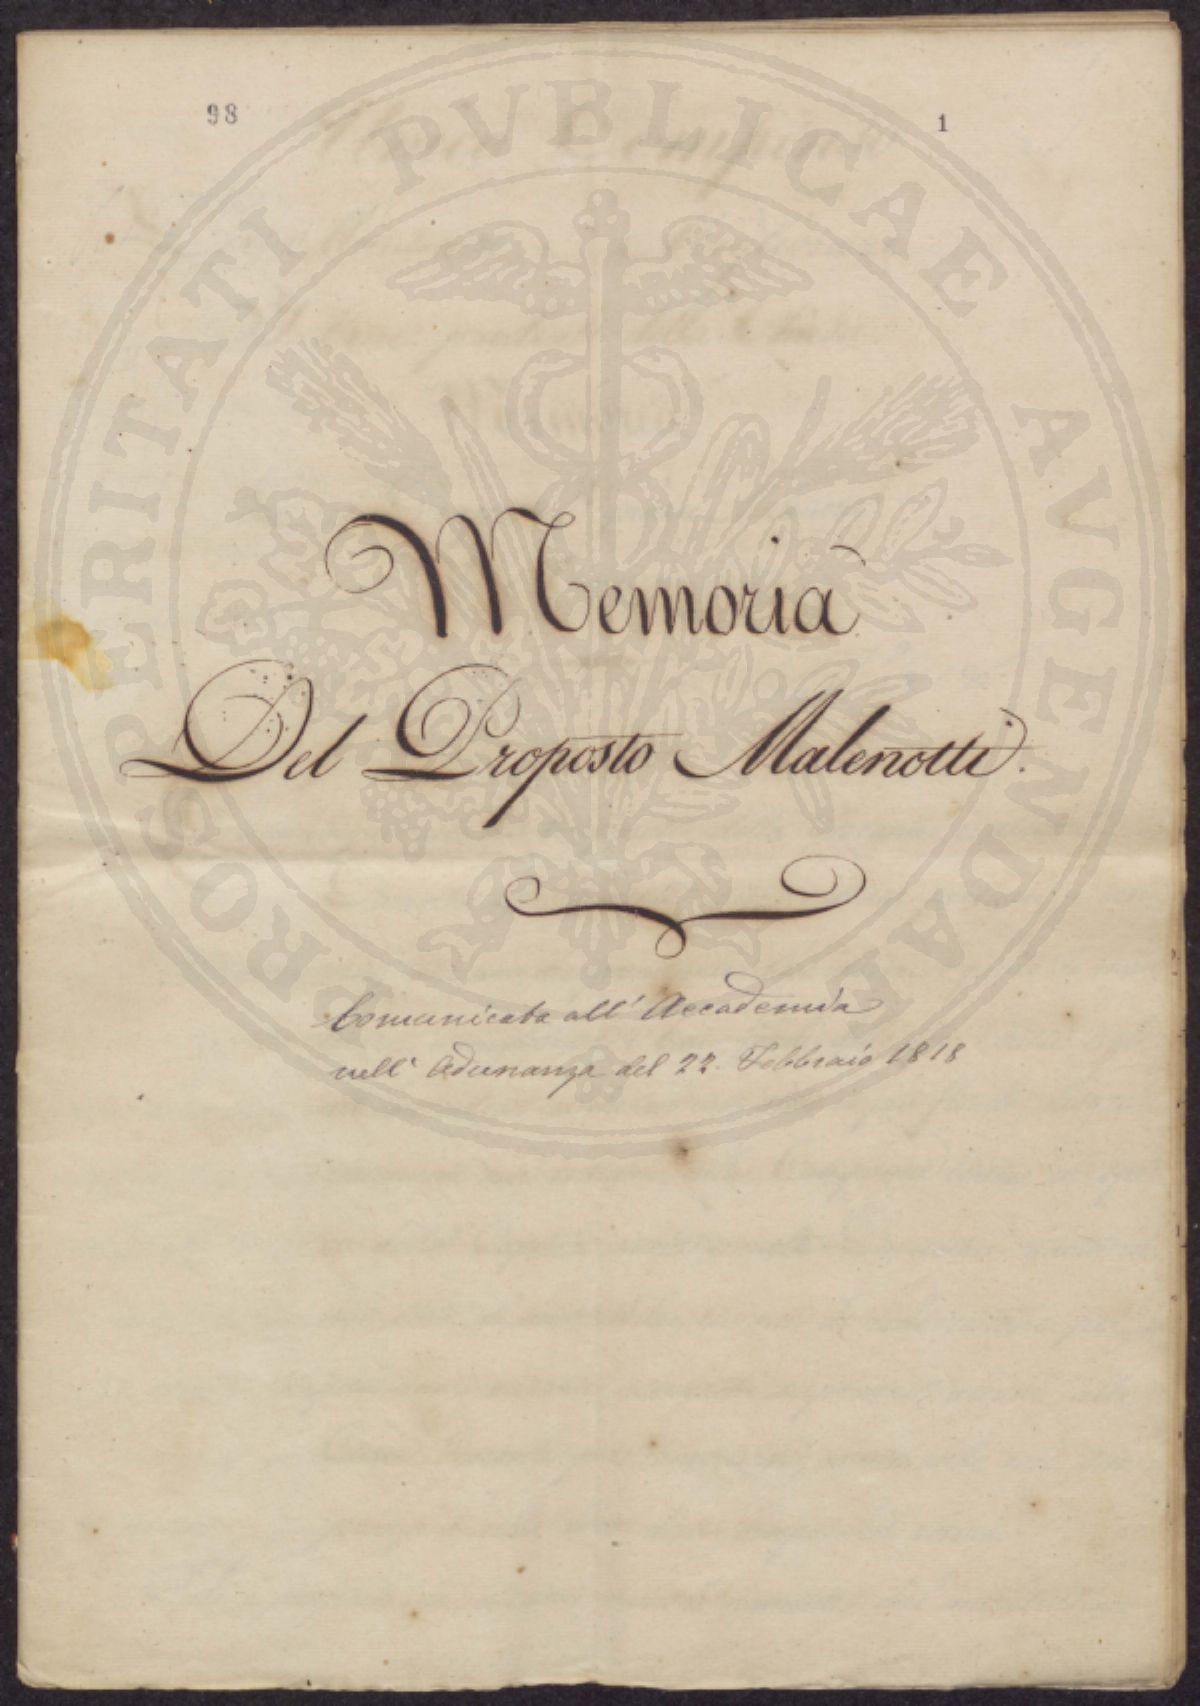 98
1
PROSPERITATI PVBLICAE AVGENDAE
Memoria
Del Proposto Malenotti.
Comunicata all' Accademia
nell' Adunanza del 22. Febbraio 1818